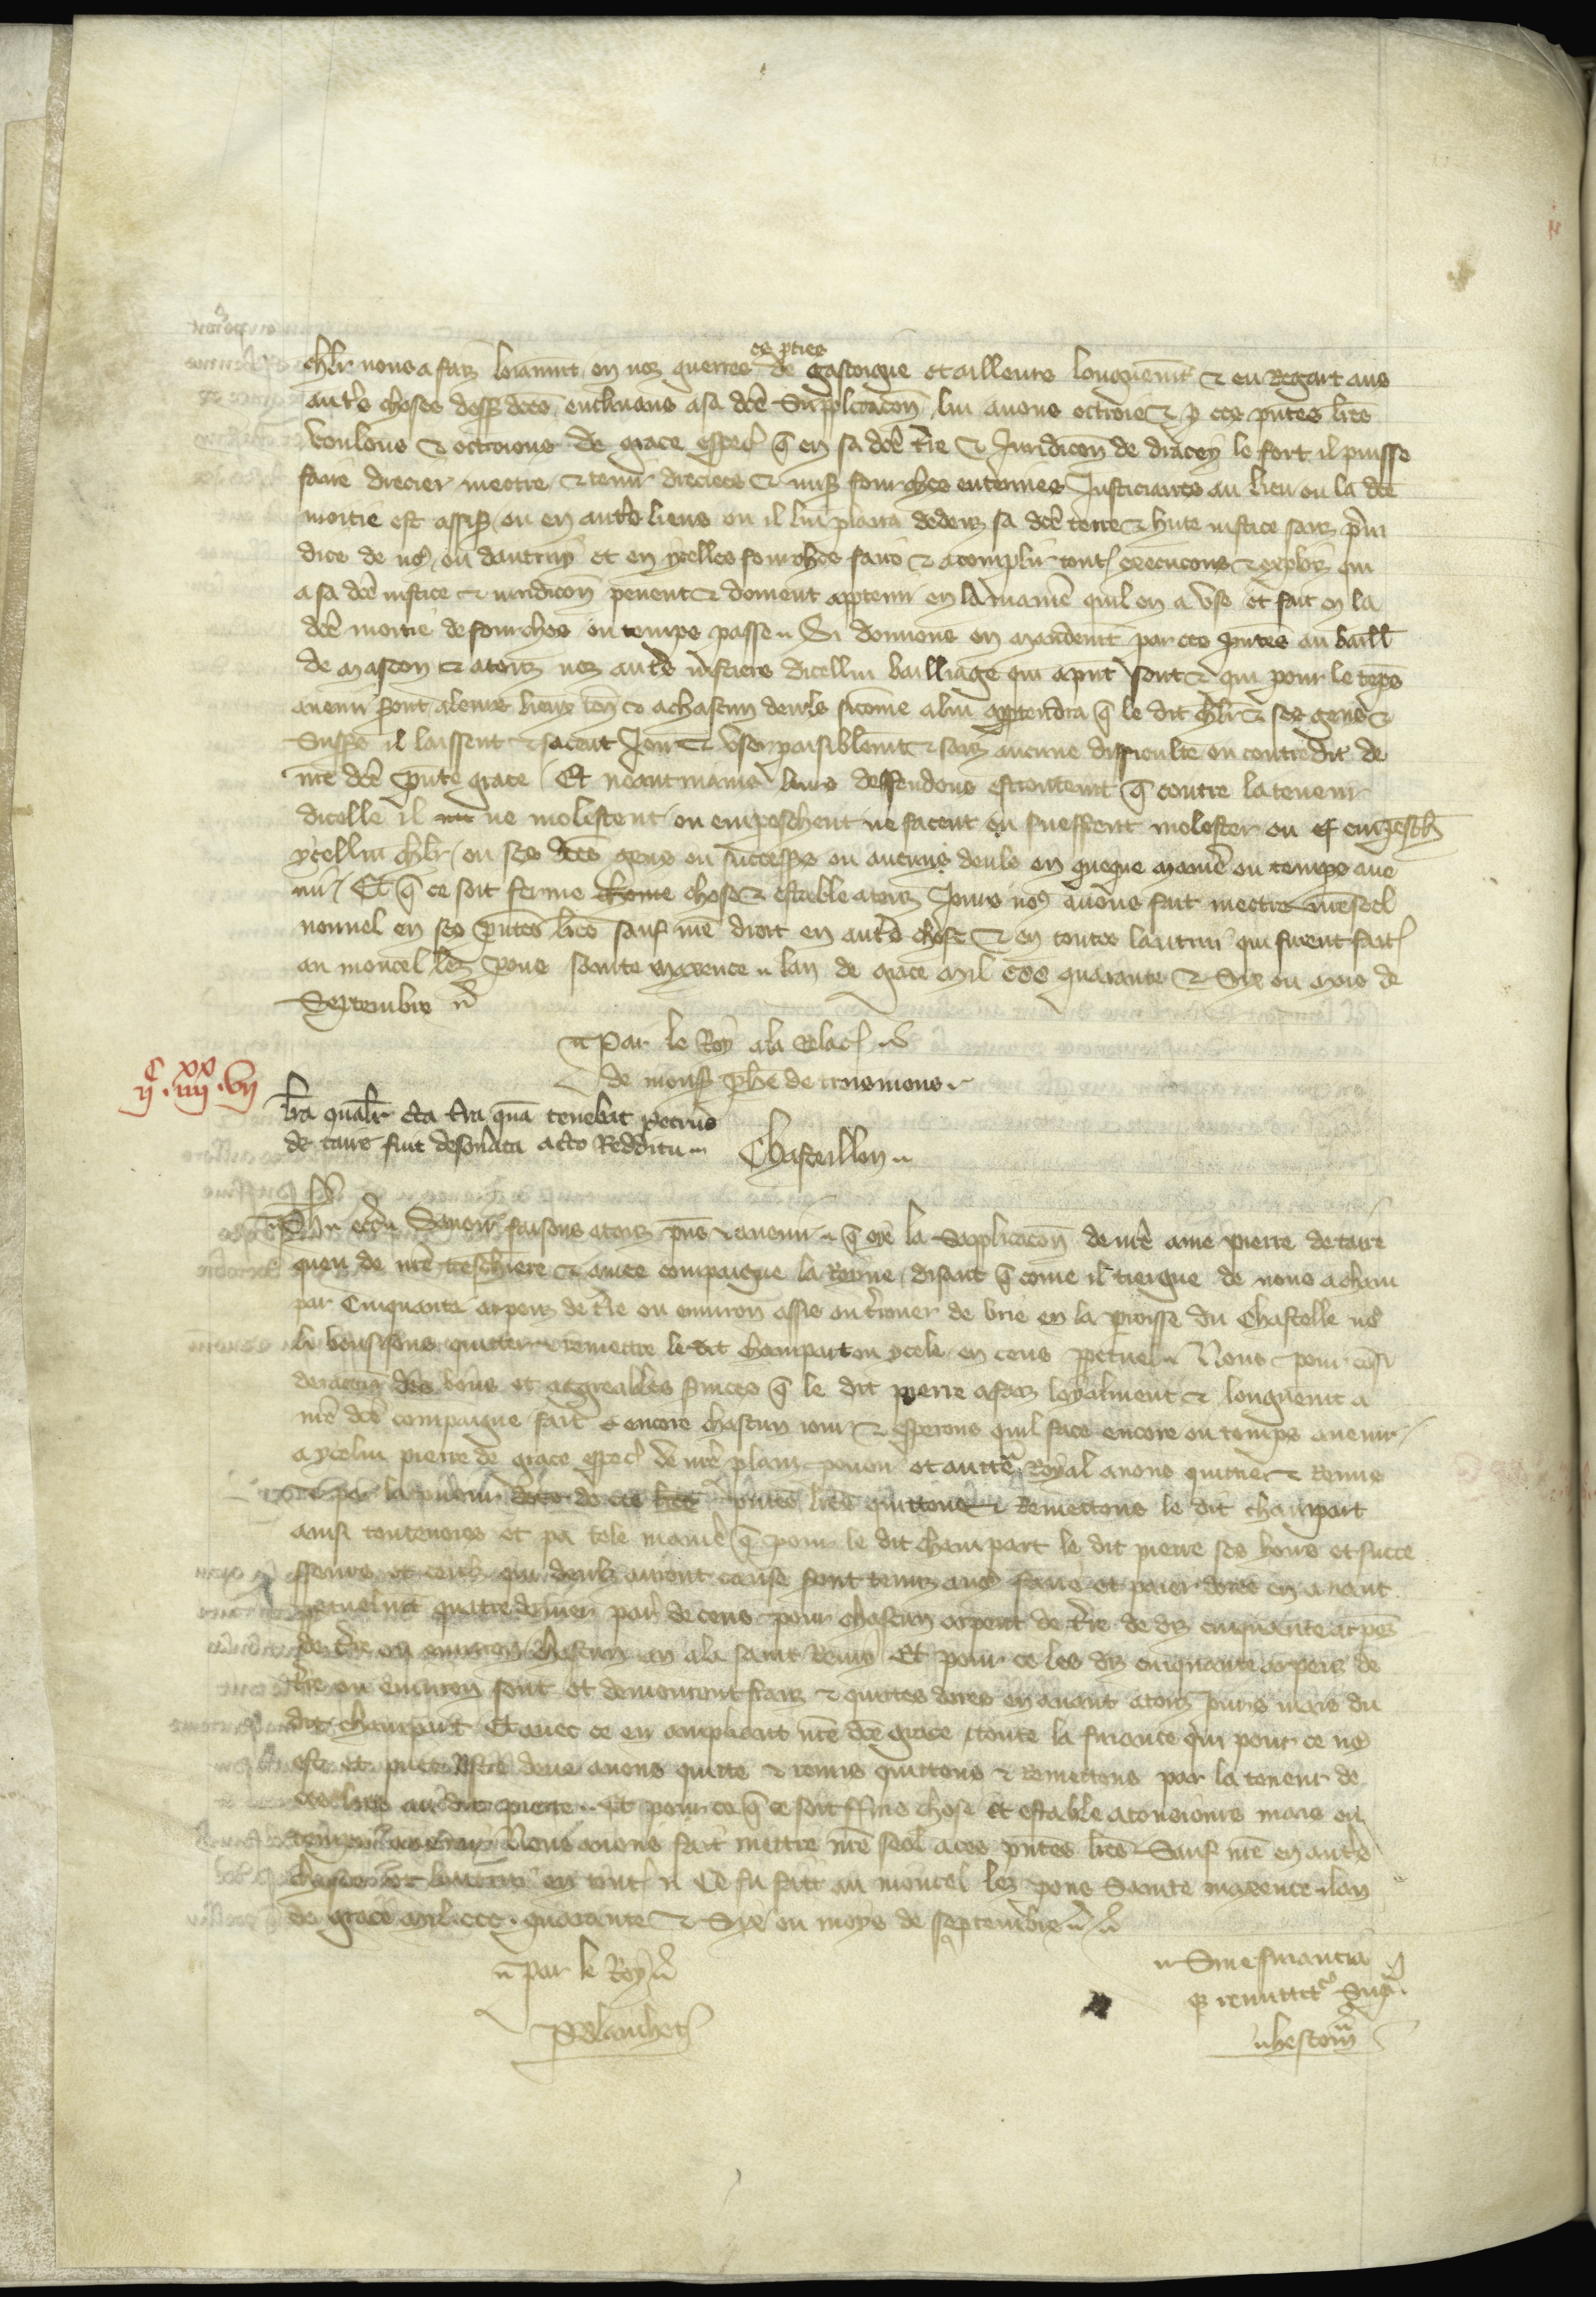 chlr nous a faiz loiaumt en noz guerres es pties de gascoigne et ailleurs longuemt & eu Regart aus
autrs choses dessus dces enclinans a sa dce Supplicacon lui auons octroie & p ces pntes lres
voulons & octroions de grace especl q en sa dce tre & Juridicon de dracey le fort il puisse
faire drecier mectre & tenir dreciees & mises fourches enterines Justiciaires au lieu ou la dce
moitie est assise ou en autre lieus ou il lui plaira dedenz sa dce terre & hute iustice sanz preiu
dice de nos ou dautruy et en ycelles fourches faire & acomplir toutes execucons & exploiz qui
a sa dce iustice & iuridicon peuent & doiuent apptenir en la maniere quil en a use et fait en la
dce moitie de fourches ou temps passe Si donnons en mandemt par ces pntes au baill
de mascon & a touz noz autres iusticiers dicellui bailliage qui apnt sont & qui pour le teps
auenir seront a leurs lieux ten & a chascun deuls sicome a lui apptendra q le dit chlr & ses gens &
Successrs il laissent & facent Joir & user paisiblemt & sanz aucune difficulte ou contredit de
nre dce pnte grace Et neantmains leurs deffendons estroitemt q contre la teneur
dicelle il ne molestent ou empeschent ne facent ou sueffrent molester ou empeschr
ycellui chlr ou ses dces gens ou successrs ou aucuns deuls en queque maniere ou temps aue
nir Et q ce soit ferme chose & estable a touz Jours nos auons fait mectre nre seel
nouuel en ses pntes lres sauf nre droit en autre chose & en toutes lautrui qui furent fait
au moncel lez pons sainte maxence lan de grace mil ccc quarante & Six ou mois de
Septembre
Par le Roy a la Relac
de mons phe de troismons
Chasteillon
iic iiiixx vii
lra qualr cta tra qua tenebat petrus
de taire fuit desonata acto Redditu
Ph etc Sauoir faisons a touz pns & auenir q oye la Supplicacon de nre ame pierre de taire
queu de nre treschiere & amee compaigne la Royne disant q come il tiengne de nous a cham
par Cinquante arpens de tre ou enuiron assis ou trouer de brie en la proisse du Chastelle nos
li vousissons quitter & remettre le dit champart en ycele en cens ppetuel Nous pour consi
deracion des bons et aggreables seruices q le dit pierre a faiz loyalment & longuemt a
nre dce compaigne fait encore chascun iour & esperons quil face encore ou temps auenir
a ycelui pierre de grace especl de nre plain pouoir et auttorite Royal auons quittier & Remis
par la teneur de ces pntes lres quittons & Remettons le dit champart
ainsi touteuoies et pa tele maniere q pour le dit champart le dit pierre ses hoirs et succe
sseurs et ceulz qui deulz auront cause sont tenuz a nos faire et paier dores en auant
ppetuelmt quatre deniers par de cens pour chascun arpent de tre de diz cinquante arpes
de tre ou enuiron chascun an a la saint Remy Et pour ce les diz cinquante arpenz de
tre ou enuiron sont et demourront frans & quittes dores en auant a touz iours mais du
dit champart Et auec ce en ampliant nre dce grace toute la finance qui pour ce nos
est et puet estre deue auons quitte & remis quittons & Remettons par la teneur de
ces lres au dit pierre Et pour ce q ce soit ferme chose et estable a tousiours mais ou
temps auenir Nous auons fait mettre nre seel a ces pntes lres Sauf nre en autre
choses et lautrui en tout Ce fu fait au moncel lez pons Sainte maxence lan
de grace mil ccc quarante & Six ou moys de septembre
par le Roy
P Blanchet
Sine financia